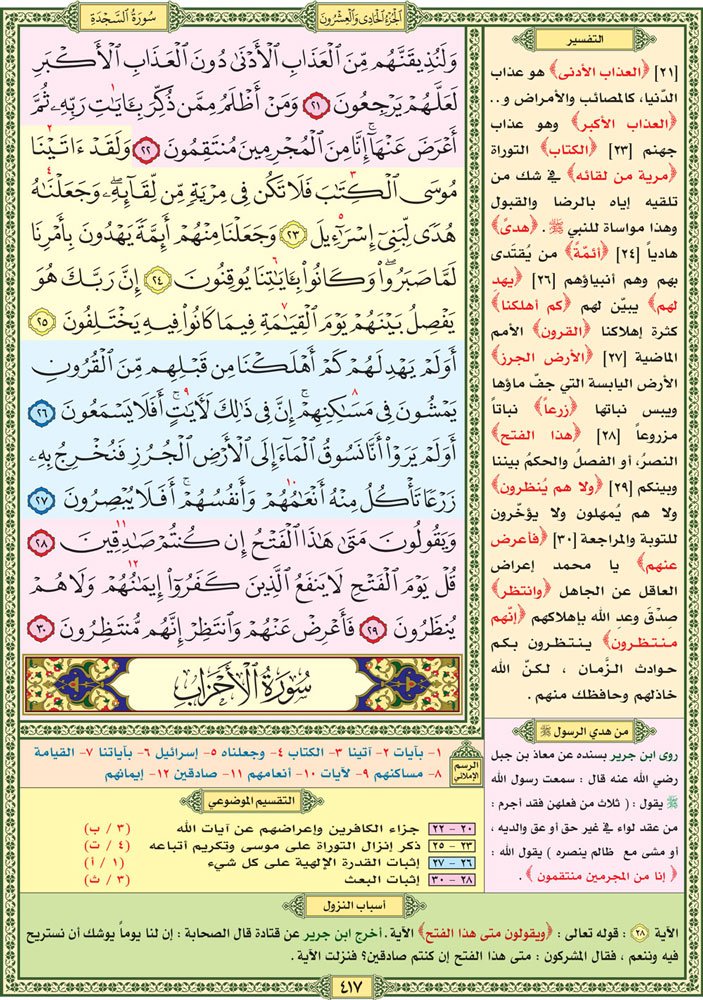 سُورَةُ السَّجْدَة
الجُزءُ الحَادِي وَالعِشْرُونَ
وَلَنُذِيقَنَّهُم مِّنَ ٱلْعَذَابِ ٱلْأَدْنَىٰ دُونَ ٱلْعَذَابِ ٱلْأَكْبَرِ
لَعَلَّهُمْ يَرْجِعُونَ ٢١ وَمَنْ أَظْلَمُ مِمَّن ذُكِّرَ بِـَٔايَٰتِ رَبِّهِۦ ثُمَّ
أَعْرَضَ عَنْهَآ ۚ إِنَّا مِنَ ٱلْمُجْرِمِينَ مُنتَقِمُونَ ٢٢ وَلَقَدْ ءَاتَيْنَا
مُوسَى ٱلْكِتَٰبَ فَلَا تَكُن فِى مِرْيَةٍ مِّن لِّقَآئِهِۦ ۖ وَجَعَلْنَٰهُ
هُدًى لِّبَنِىٓ إِسْرَٰٓءِيلَ ٢٣ وَجَعَلْنَا مِنْهُمْ أَئِمَّةً يَهْدُونَ بِأَمْرِنَا
لَمَّا صَبَرُوا۟ ۖ وَكَانُوا۟ بِـَٔايَٰتِنَا يُوقِنُونَ ٢٤ إِنَّ رَبَّكَ هُوَ
يَفْصِلُ بَيْنَهُمْ يَوْمَ ٱلْقِيَٰمَةِ فِيمَا كَانُوا۟ فِيهِ يَخْتَلِفُونَ ٢٥
أَوَلَمْ يَهْدِ لَهُمْ كَمْ أَهْلَكْنَا مِن قَبْلِهِم مِّنَ ٱلْقُرُونِ
يَمْشُونَ فِى مَسَٰكِنِهِمْ ۚ إِنَّ فِى ذَٰلِكَ لَـَٔايَٰتٍ ۖ أَفَلَا يَسْمَعُونَ ٢٦
أَوَلَمْ يَرَوْا۟ أَنَّا نَسُوقُ ٱلْمَآءَ إِلَى ٱلْأَرْضِ ٱلْجُرُزِ فَنُخْرِجُ بِهِۦ
زَرْعًا تَأْكُلُ مِنْهُ أَنْعَٰمُهُمْ وَأَنفُسُهُمْ ۖ أَفَلَا يُبْصِرُونَ ٢٧
وَيَقُولُونَ مَتَىٰ هَٰذَا ٱلْفَتْحُ إِن كُنتُمْ صَٰدِقِينَ ٢٨
قُلْ يَوْمَ ٱلْفَتْحِ لَا يَنفَعُ ٱلَّذِينَ كَفَرُوٓا۟ إِيمَٰنُهُمْ وَلَا هُمْ
يُنظَرُونَ ٢٩ فَأَعْرِضْ عَنْهُمْ وَٱنتَظِرْ إِنَّهُم مُّنتَظِرُونَ ٣٠
سُورَةُ الأَحْزَابِ
التفسير
[٢١] ﴿العذاب الأدنى﴾ هو عذاب
الدّنيا، كالمصائب والأمراض و..
﴿العذاب الأكبر﴾ وهو عذاب
جهنم [٢٣] ﴿الكتاب﴾ التوراة
﴿مرية من لقائه﴾ في شك من
تلقيه إياه بالرضا والقبول
وهذا مواساة للنبي ﷺ. ﴿هدىً﴾
هادياً [٢٤] ﴿أئمّةً﴾ من يُقتَدى
بهم وهم أنبياؤهم [٢٦] ﴿يهد
لهم﴾ يبيّن لهم ﴿كم أهلكنا﴾
كثرة إهلاكنا ﴿القرون﴾ الأمم
الماضية [٢٧] ﴿الأرض الجرز﴾
الأرض اليابسة التي جفّ ماؤها
ويبس نباتها ﴿زرعاً﴾ نباتاً
مزروعاً [٢٨] ﴿هذا الفتح﴾
النصرُ، أو الفصلُ والحكمُ بيننا
وبينكم [٢٩] ﴿ولا هم يُنظرون﴾
ولا هم يُمهلون ولا يؤخّرون
للتوبة والمراجعة [٣٠] ﴿فأعرض
عنهم﴾ يا محمد إعراض
العاقل عن الجاهل ﴿وانتظر﴾
صدْقَ وعد الله بإهلاكهم ﴿إنّهم
منتظرون﴾ ينتظرون بكم
حوادث الزّمان ، لكنّ الله
خاذلهم وحافظك منهم .
من هدي الرسول ﷺ
روى ابن جرير بسنده عن معاذ بن جبل
رضي الله عنه قال : سمعت رسول الله
ﷺ يقول : ( ثلاث من فعلهن فقد أجرم :
من عقد لواء في غير حق أو عق والديه ،
أو مشى مع ظالم ينصره ) يقول الله :
﴿ إنا من المجرمين منتقمون ﴾ .
الرسم الإملائي
١- بآيات ٢- آتينا ٣- الكتاب ٤- وجعلناه ٥- إسرائيل ٦- بآياتنا ٧- القيامة
٨- مساكنهم ٩- لآيات ١٠- أنعامهم ١١- صادقين ١٢- إيمانهم
التقسيم الموضوعي
٢٠ - ٢٢ جزاء الكافرين وإعراضهم عن آيات الله (٣ / ب)
٢٣ - ٢٥ ذكر إنزال التوراة على موسى وتكريم أتباعه (٤ / ت)
٢٦ - ٢٧ إثبات القدرة الإلهية على كل شيء (١ / أ)
٢٨ - ٣٠ إثبات البعث (٣ / ث)
أسباب النزول
الآية ٢٨ : قوله تعالى : ﴿ويقولون متى هذا الفتح﴾ الآية . أخرج ابن جرير عن قتادة قال الصحابة : إن لنا يوماً يوشك أن نستريح
فيه وننعم ، فقال المشركون : متى هذا الفتح إن كنتم صادقين؟ فنزلت الآية .
٤١٧